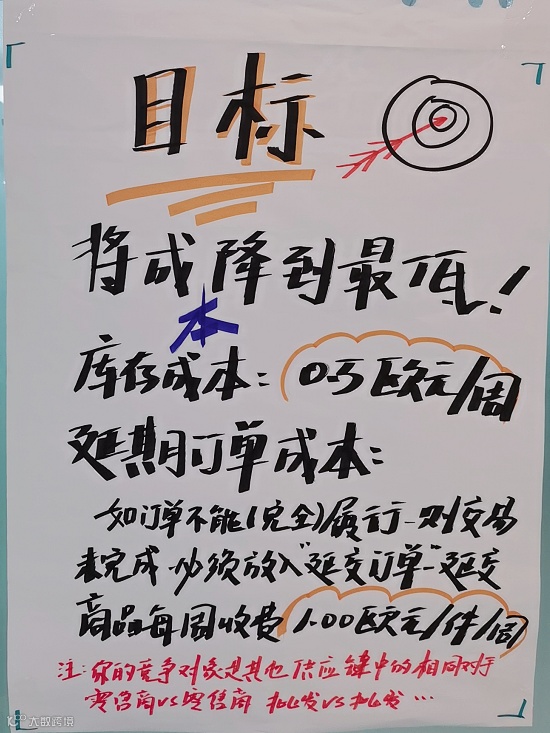 目标
将成本降到最低!
库存成本: 0.5欧元/周
延期订单成本:
如订单不能(完全)履行-则交易
未完成-必须放入"延交订单"-延交
商品每周收费 1.00欧元/件/周
注:你的竞争对象是其他供应键中的相同对手
零售商vs零售商 批发vs批发…
大数跨境